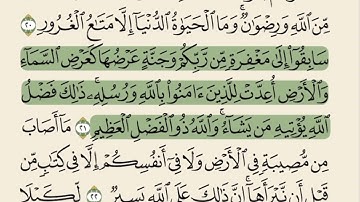 مِّنَ ٱللَّهِ وَرِضْوَٰنٌ ۚ وَمَا ٱلْحَيَوٰةُ ٱلدُّنْيَآ إِلَّا مَتَـٰعُ ٱلْغُرُورِ ٢٠
سَابِقُوٓا۟ إِلَىٰ مَغْفِرَةٍ مِّن رَّبِّكُمْ وَجَنَّةٍ عَرْضُهَا كَعَرْضِ ٱلسَّمَآءِ
وَٱلْأَرْضِ أُعِدَّتْ لِلَّذِينَ ءَامَنُوا۟ بِٱللَّهِ وَرُسُلِهِۦ ۚ ذَٰلِكَ فَضْلُ
ٱللَّهِ يُؤْتِيهِ مَن يَشَآءُ ۚ وَٱللَّهُ ذُو ٱلْفَضْلِ ٱلْعَظِيمِ ٢١ مَآ أَصَابَ
مِن مُّصِيبَةٍ فِى ٱلْأَرْضِ وَلَا فِىٓ أَنفُسِكُمْ إِلَّا فِى كِتَـٰبٍ مِّن
قَبْلِ أَن نَّبْرَأَهَآ ۚ إِنَّ ذَٰلِكَ عَلَى ٱللَّهِ يَسِيرٌ ٢٢ لِّكَيْلَا